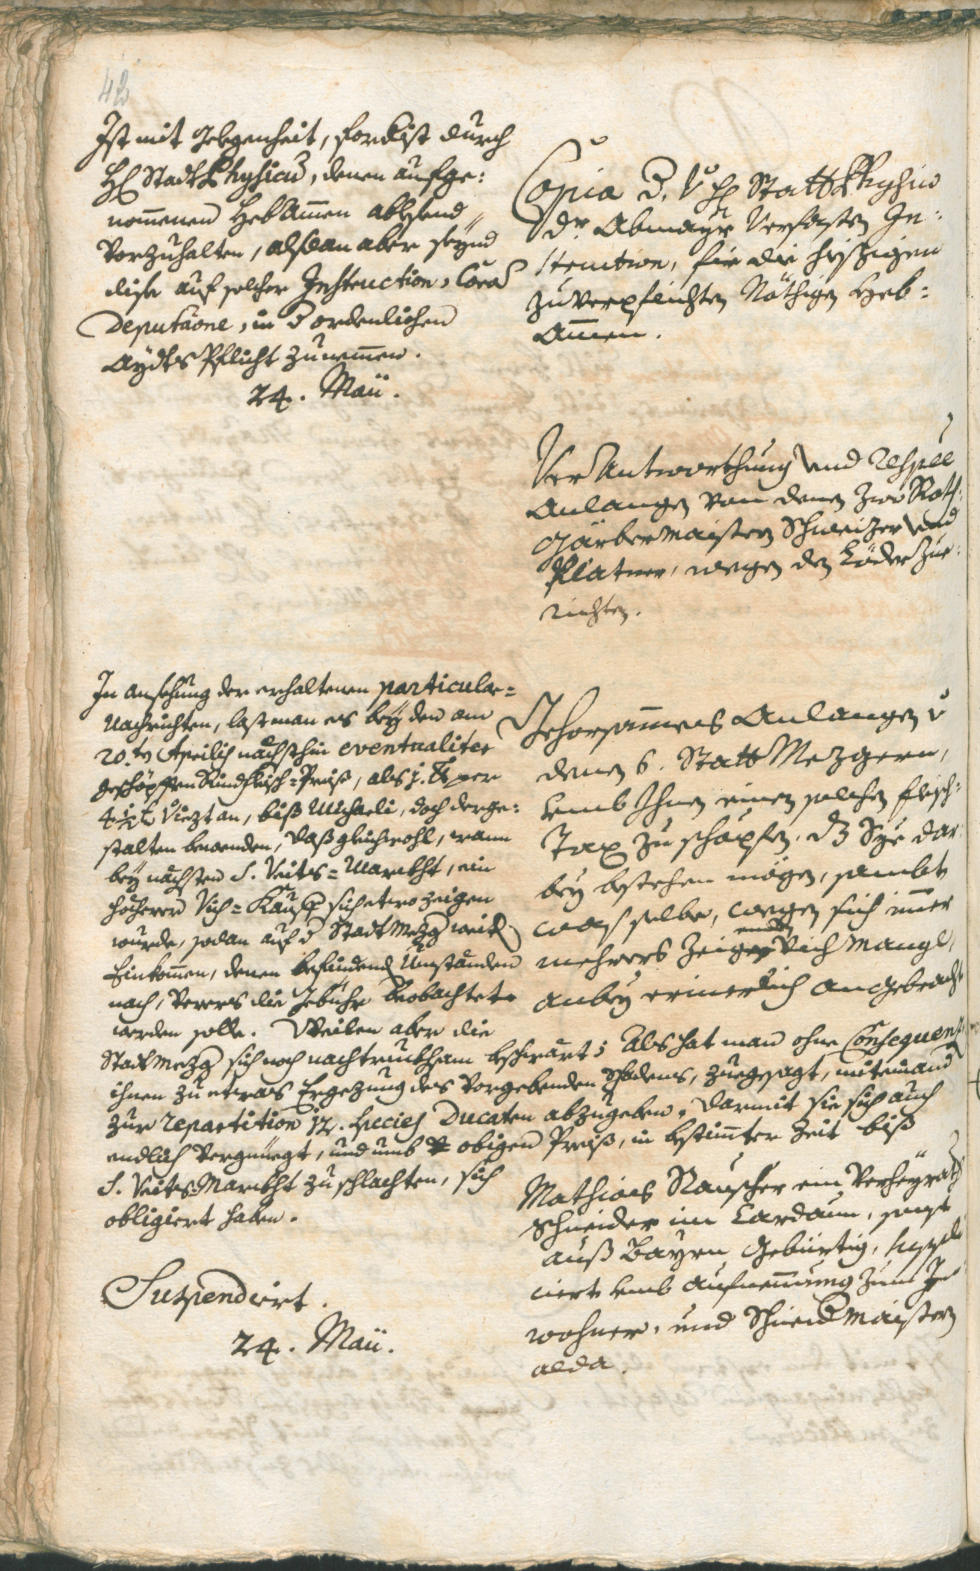 42
Ist mit Gelegenheit, fordrist durch
H: Stadt Physicus, denen aufge:
nommenen Heb Ammen ablesend
vorzuhalten, alsdan aber seynd
dise auf solcher Instruction, Coram
Deputaõne, in d ordenlichen
Aydts Pflicht zu nemmen.
24. Maii.
Copia d. v H: Statt Physico
dr. Abmayr verfasten In:
struction, für die hisigen
zuverpflichten Nöthigen Heb:
Ammen.
Ver Antworthung und respec
Anlangen von denen zwo Roth:
Gärbermaistern Schweizer und
Platner, wegen der Löder Zue:
richten.
In ansehung der erhaltenen particular=
Nachrichten, last man es bey den am
20.ten Aprilis nächsthin eventualiter
geschöpften Rindfleisch=Preiß, als j. ℔ per
4½ x Viezt an, biß Michaeli, doch derge:
stalten bewenden, daß gleichwohl, wann
bey nächsten S. Veits=Marckht, ein
höcherer Vich=Kauf sich etwo zeigen
wurde, sodan auf d Stadt Mezg weiters
Einkommen, denen befündend Umständen
nach, verers die Gebühr beobachtet
werden solle. Weilen aber die
Stadt Mezg sich noch nachtruckham beschwärt; Als hat man ohne Consequenz
ihnen zu etwas Ergezung des vorgebenden Schadens, zuegesagt, miteinand
zur repartition 12. species Ducaten abzugeben, darmit sie sich auch
endlich vergnüegt, und umb obigen Preiß, in bestimter Zeit biß
S. Veits Marckht zu schlachten, sich
obligiert haben.
Gehorsammes Anlangen v
denen 6. Statt Mezgern,
umb Ihnen einen solchen fleisch:
Tax zu schöpfen, dz Sye dar
bey bestehen mögen, sambt
was selbe, wegen sich imer
mehrers Zeigenden Vich Mangl,
anbey erinerlich angebracht
Mathias Rauscher ein verheyrath
Schneider im Cardaun, sonst
auß Bayrn gebürtig, suppli
ciert umb aufnemmung zum In
wohner, und Schneidmaistern
alda.
Suspendiert.
24. Maii.